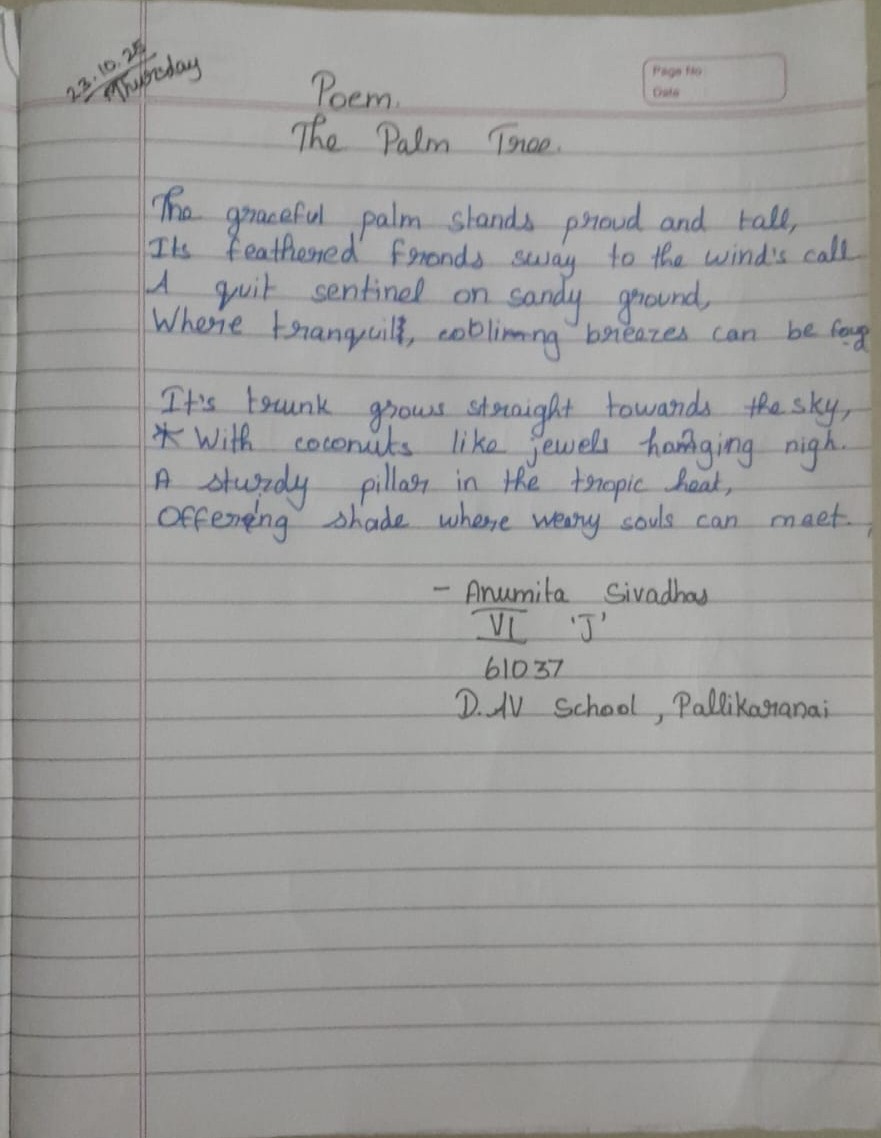 23.10.25
Thursday
Page No
Date
Poem.
The Palm Tree.
The graceful palm stands proud and tall,
Its feathered fronds sway to the wind's call
A quit sentinel on sandy ground,
Where tranquill, breazes can be
It's trunk grows straight towards the sky,
* With coconuts like jewels hanging nigh.
A sturdy pillar in the tropic heat,
Offering shade where weary souls can meet.
- Anumita Sivadhas
VI 'J'
61037
D.AV School, Pallikaranai